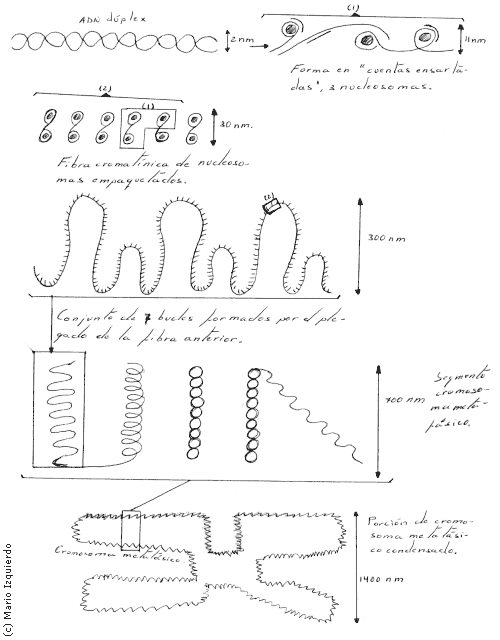 ADN dúplex
2 nm
(1)
11 nm
Forma en "cuentas ensarta-
das", 3 nucleosomas.
(2)
(1)
30 nm.
Fibra cromatínica de nucleoso-
mas empaquetados.
(2)
300 nm
Conjunto de 7 bucles formados por el ple-
gado de la fibra anterior.
700 nm
Segmento
cromoso-
ma metá-
fásico.
Cromosoma metafásico.
Porción de cromo-
soma metafási-
co condensado.
1400 nm
(c) Mario Izquierdo